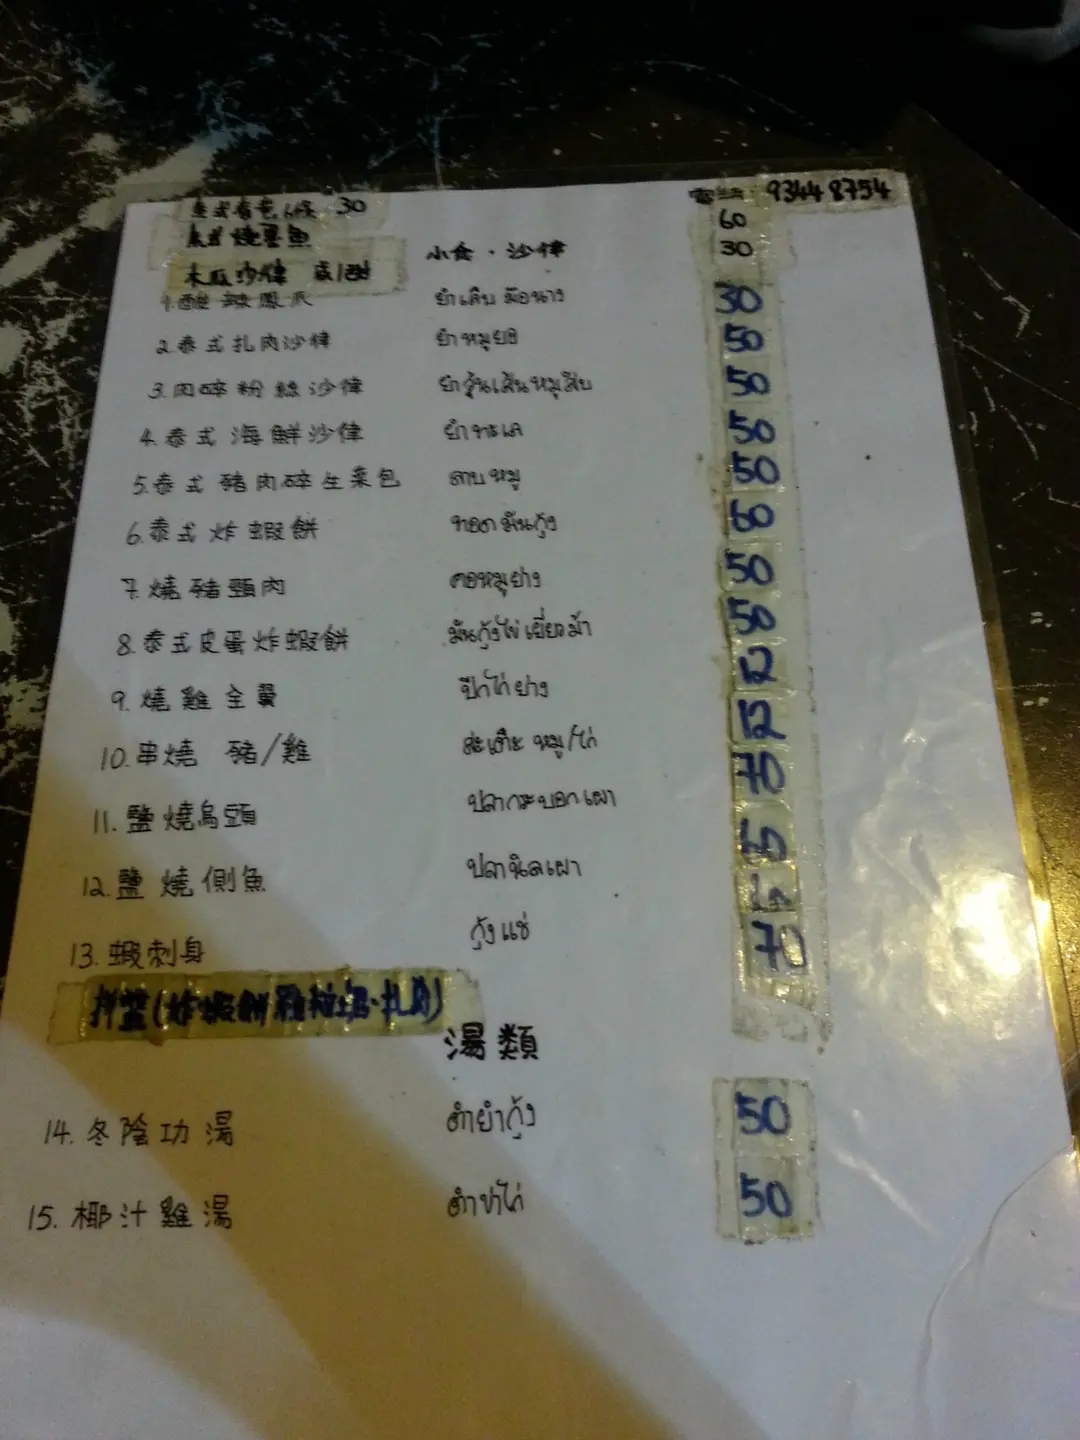 電話: 9344 8754
泰式春卷 6條 30
泰式燒墨魚 60
木瓜沙律 30
小食 · 沙律
1. 酸辣鳳爪 ยำเล็บมือนาง 30
2. 泰式扎肉沙律 ยำหมูยอ 50
3. 肉碎粉絲沙律 ยำวุ้นเส้นหมูสับ 50
4. 泰式海鮮沙律 ยำทะเล 50
5. 泰式豬肉碎生菜包 ลาบหมู 50
6. 泰式炸蝦餅 ทอดมันกุ้ง 60
7. 燒豬頸肉 คอหมูย่าง 50
8. 泰式皮蛋炸蝦餅 มันกุ้งไข่เยี่ยวม้า 50
9. 燒雞全翼 ปีกไก่ย่าง 12
10. 串燒 豬/雞 สะเต๊ะ หมู/ไก่ 12
11. 鹽燒烏頭 ปลากระบอกเผา 70
12. 鹽燒側魚 ปลานิลเผา
13. 蝦刺身 กุ้งแช่
70
湯類
14. 冬陰功湯 ตำยำกุ้ง 50
15. 椰汁雞湯 ตำข่าไก่ 50